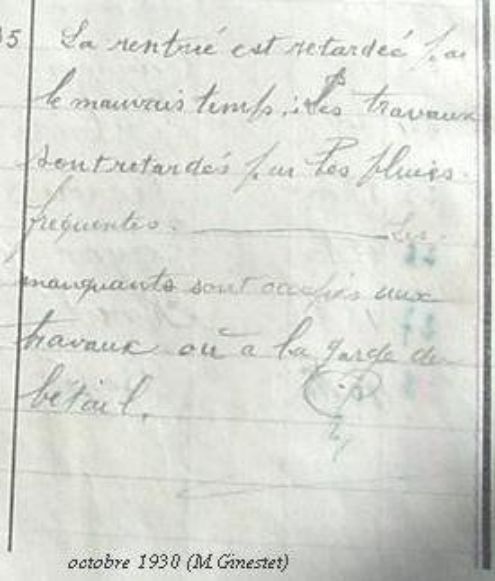 35 La rentrié est retardeé par
le mauvais temps ; les travaux
sont retardés par les pluies
frequentes. ———— Les
manquants sont occupés aux
travaux ou à la garde du
bétail.
octobre 1930 (M. Ginestet)